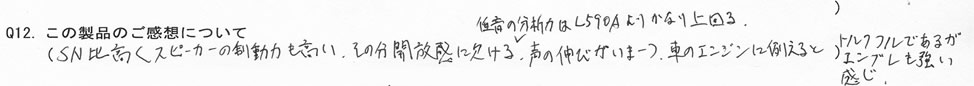 Q12. この製品のご感想について
低音の分析力はL590Aよりかなり上回る。
(SN比高くスピーカーの制動力も高い。その分開放感に欠ける。声の伸びがいま一つ。車のエンジンに例えると
)トルクフルであるが
エンブレも強い
感じ。
)